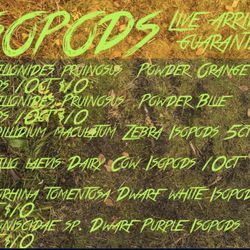 SOPODS LIVE ARR
GUARAN
LLIONIDES PRUINOSUS POWDER ORANGE
DS 10CT $10
LLIONIDES PRUINOSUS POWDER BLUE
DS 10CT $10
DILLIDIUM MACULATUM ZEBRA ISOPODS 5CT
LLIO LAEVIS DAIRY COW ISOPODS 10CT
ORHINA TOMENTOSA DWARF WHITE ISOPODS
$10
ONISCIDAE SP. DWARF PURPLE ISOPODS
$10